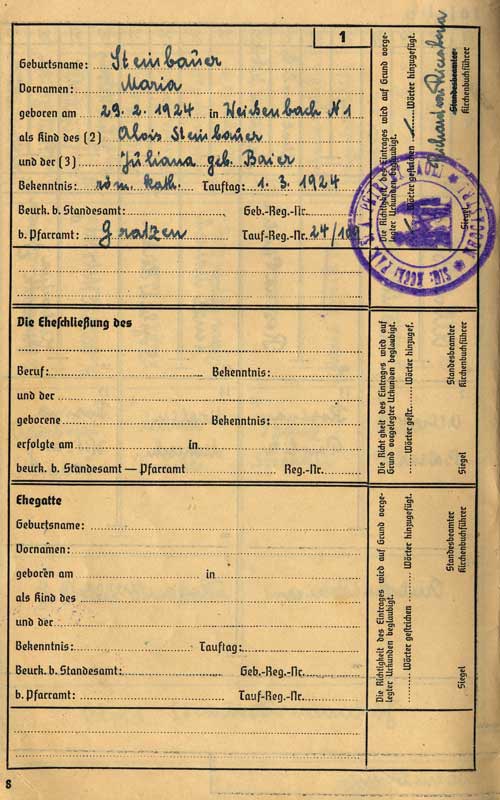 1
Geburtsname: Steinbauer
Vornamen: Maria
geboren am 29. 2. 1924 in Weißenbach N 1
als Kind des (2) Alois Steinbauer
und der (3) Juliana geb. Baier
Bekenntnis: röm. kath. Tauftag: 1. 3. 1924
Beurk. b. Standesamt: Geb.-Reg.-Nr.
b. Pfarramt: Gratzen Tauf-Reg.-Nr. 24/109
Die Richtigkeit des Eintrages wird auf Grund vorge-
legter Urkunden beglaubigt.
Wörter gestrichen Wörter hinzugefügt.
Siegel
Standesbeamter
Kirchenbuchführer
Die Eheschließung des
Beruf: Bekenntnis:
und der
geborene Bekenntnis:
erfolgte am in
beurk. b. Standesamt — Pfarramt Reg.-Nr.
Die Richtigkeit des Eintrages wird auf
Grund vorgelegter Urkunden beglaubigt.
Wörter gestr. Wörter hinzugef.
Siegel
Standesbeamter
Kirchenbuchführer
Ehegatte
Geburtsname:
Vornamen:
geboren am in
als Kind des
und der
Bekenntnis: Tauftag:
Beurk. b. Standesamt: Geb.-Reg.-Nr.
b. Pfarramt: Tauf-Reg.-Nr.
Die Richtigkeit des Eintrages wird auf Grund vorge-
legter Urkunden beglaubigt.
Wörter gestrichen Wörter hinzugefügt.
Siegel
Standesbeamter
Kirchenbuchführer
8